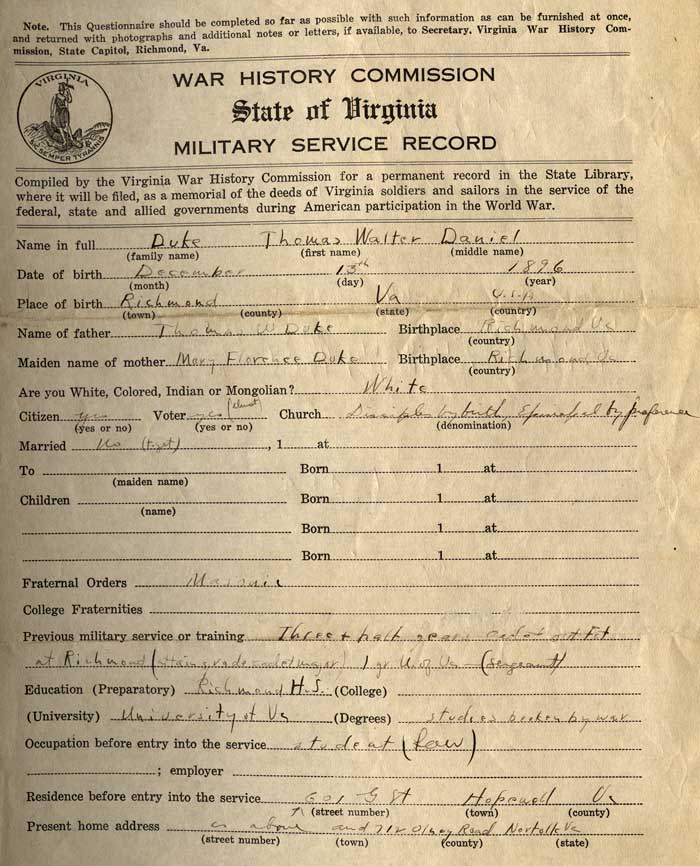 Note. This Questionnaire should be completed so far as possible with such information as can be furnished at once,
and returned with photographs and additional notes or letters, if available, to Secretary. Virginia War History Com-
mission, State Capitol, Richmond, Va.
VIRGINIA
SIC SEMPER TYRANNIS
WAR HISTORY COMMISSION
State of Virginia
MILITARY SERVICE RECORD
Compiled by the Virginia War History Commission for a permanent record in the State Library,
where it will be filed, as a memorial of the deeds of Virginia soldiers and sailors in the service of the
federal, state and allied governments during American participation in the World War.
Name in full Duke Thomas Walter Daniel
(family name) (first name) (middle name)
Date of birth December 13th 1896
(month) (day) (year)
Place of birth Richmond Va U.S.A
(town) (county) (state) (country)
Name of father Thomas W Duke Birthplace Richmond Va
(country)
Maiden name of mother Mary Florence Duke Birthplace Richmond Va
(country)
Are you White, Colored, Indian or Mongolian? White
Citizen yes Voter yes Church Disciples by birth Episcopal by preference
(yes or no) (yes or no) (denomination)
Married No (yet), 1 at
To Born 1 at
(maiden name)
Children Born 1 at
(name)
Born 1 at
Born 1 at
Fraternal Orders Masonic
College Fraternities
Previous military service or training Three + half years cadet
at Richmond ( cadet major) 1 yr U. of Va - (Sergeant)
Education (Preparatory) Richmond H.S. (College)
(University) University of Va (Degrees) studies broken by war
Occupation before entry into the service student (Law)
; employer
Residence before entry into the service 601 G St Hopewell Va
(street number) (town) (county)
Present home address as above and 712 Olney Road Norfolk Va
(street number) (town) (county) (state)